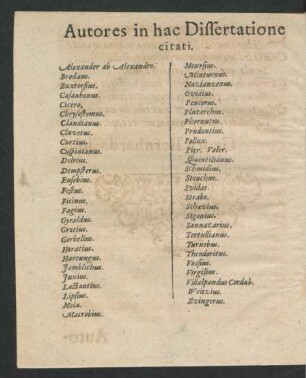 Autores in hac Dissertatione
citati.
Alexander ab Alexandro.
Brodæus.
Buxtorfius.
Casaubonus.
Cicero.
Chrysostomus.
Claudianus.
Cluverus.
Curtius.
Cuspinianus.
Delrius.
Dempsterus.
Eusebius.
Festus.
Ficinus.
Fagius.
Gyraldus.
Gratius.
Gerbelius.
Horatius.
Hartungus.
Jamblichus.
Junius.
Lactantius.
Lipsius.
Mela.
Macrobius.
Meursius.
Minturnus.
Nazianzenus.
Ovidius.
Peucerus.
Plutarchus.
Phornutus.
Prudentius.
Pollux.
Pier. Valer.
Quintilianus.
Schmidius.
Steuchus.
Svidas.
Strabo.
Scævius.
Sigonius.
Sannazarius.
Tertullianus.
Turnebus.
Theodoritus.
Vossius.
Virgilius.
Villalpandus Cordub.
Weitzius.
Zvingerus.
Auto-